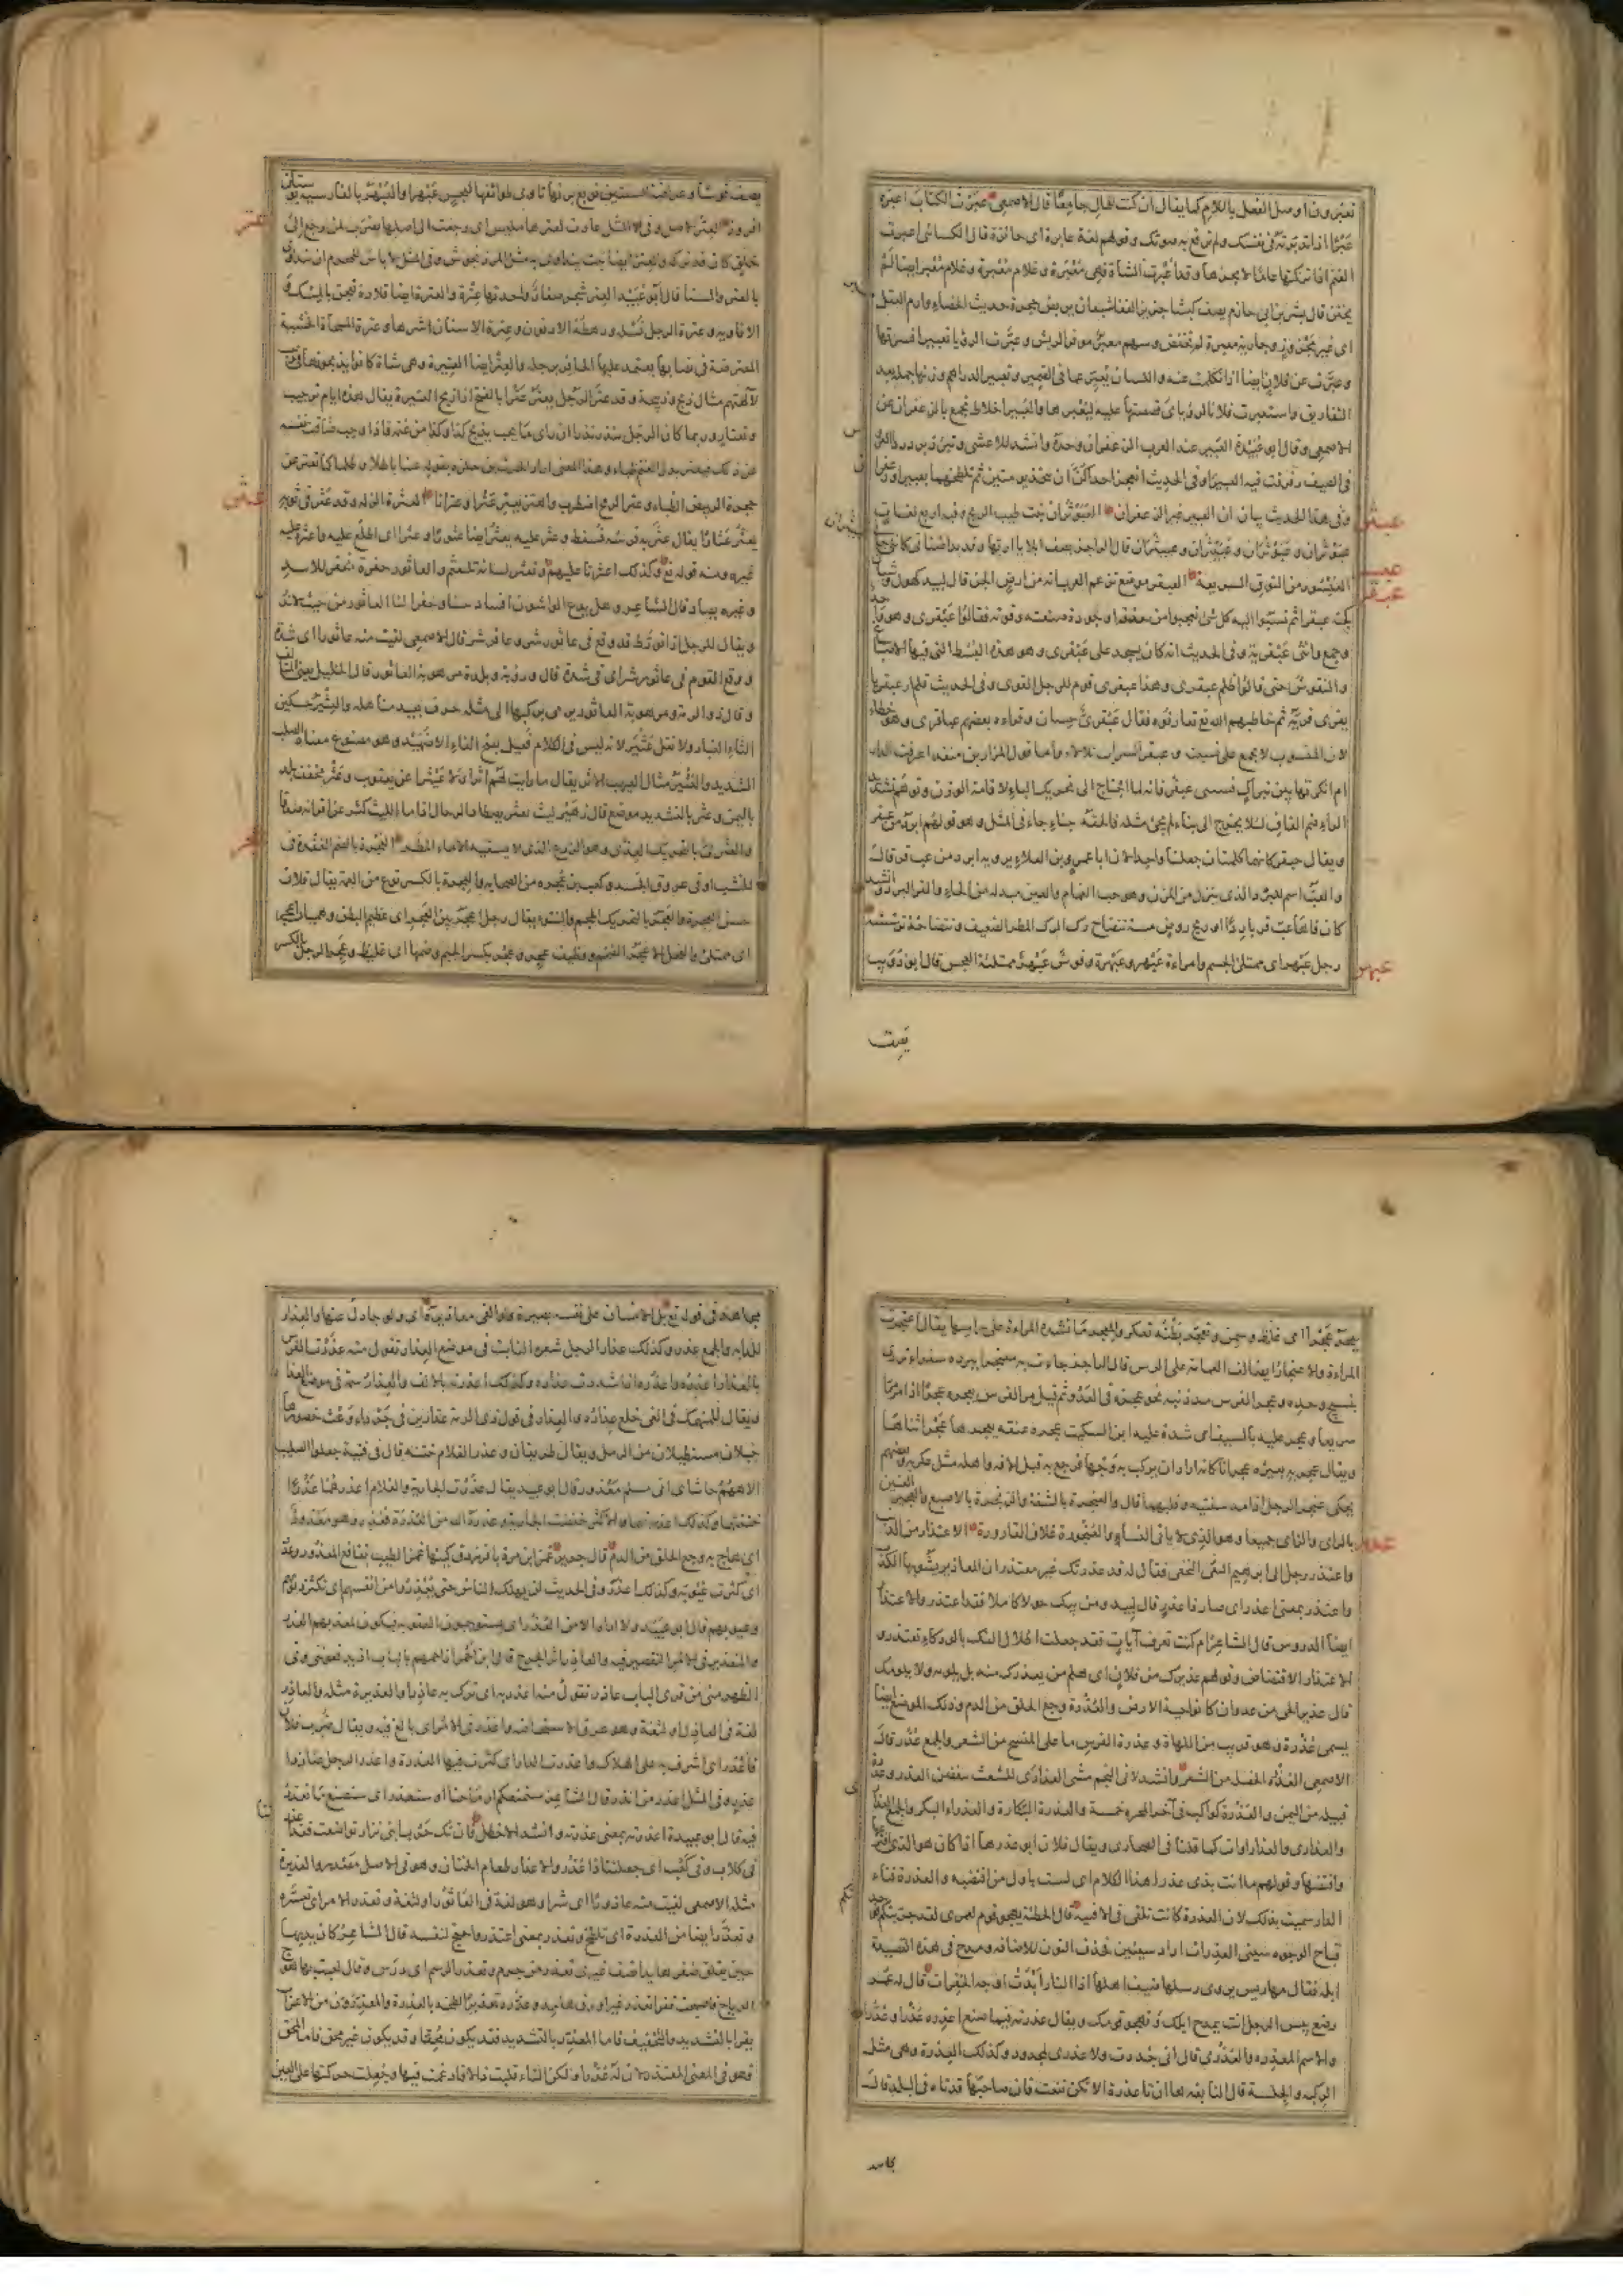 تعبرون اوصل الفعل باللام كما يقال ان كنت للمال جامعا قال الاصمعي عبرت الكتاب اعبره
عبرا اذا تدبرته في نفسك ولم ترفع به صوتك وقولهم لغة عابرة اى جائزة قال الكسائى اعبرت
الغنم اذا تركتها عاما لا يجزها وقد اعبرت الشاة فهى معبرة وغلام معبر ايضا لم
يختن قال بشر بن ابى حازم يصف كبشا
اى غير مجذوذ وجارية معبرة لم تخفض وسهم معبر موفر الريش وعبرت الرؤيا تعبيرا فسرتها
وعبرت عن فلان ايضا اذا تكلمت عنه واللسان يعبر عما فى الضمير وتعبير الدراهم وزنها جملة بعد
التفاريق واستعبرت فلانا لرؤياى قصصتها عليه ليعبرها والعبير اخلاط تجمع بالزعفران عن
الاصمعى وقال ابو عبيدة العبير عند العرب الزعفران وحده وانشد للاعشى وتبرد برد رداء العر
فى الصيف رقرقت فيه العبيرا وفى الحديث اتعجز احداكن ان تتخذ تومتين ثم تلطخهما بعبير او زعفران
وفى هذا الحديث بيان ان العبير غير الزعفران العبوثران نبت طيب الريح وفيه اربع لغات
عبوثران وعبوثران وعبيثران وعبيثران قال الراجز يصف ابلا
العبسور من النوق السريعة العبقر موضع تزعم العرب انه من ارض الجن قال لبيد كهول وشبان
كجنة عبقر ثم نسبوا اليه كل شئ تعجبوا من حذقه او جودة صنعته وقوته فقالوا عبقرى وهو واحد
وجمع وانثى عبقرية وفى الحديث انه كان يسجد على عبقرى وهو هذه البسط التى فيها الاصباغ
والنقوش حتى قالوا ظلم عبقرى وهذا عبقرى قوم للرجل القوى وفى الحديث فلم ار عبقريا
يفرى فريه ثم خاطبهم الله تع بما تعارفوه فقال عبقرى حسان وقراءه بعضهم عباقرى وهو خطاء
لان المنسوب لا يجمع على نسبته وعبقر السراب تلالاء واما قول المرار بن منقذ اعرفت الدار
ام انكرتها بين تبراك فشسى عبقر فانه لما احتاج الى تحريك الباء لاقامة الوزن وتوهم تشديد
الراء ضم القاف لئلا يخرج الى بناء لم يجئ مثله فالحقه ببناء جاء فى المثل وهو قولهم ابرد من عبقر
ويقال حبقر كانهما كلمتان جعلتا واحدا لان ابا عمرو بن العلاء يرويه ابرد من عب قر قال
والعب اسم للبرد الذى ينزل من المزن وهو حب الغمام والعين مبدلة من الحاء والقر البرد وانشد
كان فاها عب قر بارد او ريح روض مسه تنضاح رك الرك المطر الضعيف وتنضاحه ترششه
رجل عبهر اى ممتلئ الجسم وامراءة عبهر وعبهرة وقوس عبهر ممتلئة العجس قال ابو ذؤيب
يصف
افروز العتر الاصل وفى المثل عادت لعترها لميس اى رجعت الى اصلها يضرب لمن رجع الى
خلق كان قد تركه والعتر ايضا نبت يتداوى به مثل المرزنجوش وفى المثل لا باس للمحرم ان يتداوى
بالعتر والسنا قال ابو عبيد العتر شجر صغار واحدتها عترة والعترة ايضا قلادة تعجن بالمسك و
الافاويه وعترة الرجل نسله ورهطه الادنون وعترة الاسنان اشرها وعترة المسحاة الخشبة
المعترضة فى نصابها يعتمد عليها الحافر برجله والعتر ايضا العتيرة وهى شاة كانوا يذبحونها فى رجب
لآلهتهم مثال ذبح وذبيحة وقد عتر الرجل يعتر عترا بالفتح اذا ذبح العتيرة يقال هذه ايام ترجيب
وتعتار وربما كان الرجل ينذر نذرا ان راى ما يحب يذبح كذا وكذا من غنمه فاذا وجب ضاقت نفسه
عن ذلك فيعتر بدل الغنم ظباء وهذا المعنى اراد الحرث بن حلزه بقوله عننا باطلا وظلما كما تعتر عن
حجرة الربيض الظباء وعتر الرمح اضطرب واهتز يعتر عترا وعترانا العثرة الزلة وقد عثر فى ثوبه
يعثر عثارا يقال عثر به فرسه فسقط وعثر عليه يعثر ايضا عثورا وعثرا اى اطلع عليه واعثره عليه
غيره ومنه قوله تع وكذلك اعثرنا عليهم وتعثر لسانه تلعثم والعاثور حفرة تحفر للاسد
وغيره يصاد قال الشاعر وهل يدع الواشون افساد بيننا وحفرا لنا العاثور من حيث لا ندرى
ويقال للرجل اذا تورط قد وقع فى عاثور شر وعافور شر قال الاصمعى لقيت منه عاثورا اى شدة
ووقع القوم فى عاثور شر اى فى شدة قال رؤبة وبلدة مرهوبة العاثور قال الخليل يعنى المتالف
وقال ذو الرمة ومرهوبة العاثور يرمى بركبها الى مثله حرف بعيد مناهله والعثير بتسكين
الثاء الغبار ولا تقل عثير لانه ليس فى الكلام فعيل بفتح الفاء الا ضهيد وهو مصنوع معناه الصلب
الشديد والعثير مثال الغيهب الاثر يقال ما رايت لهم اثرا ولا عيثرا عن يعقوب وعثر مخفف بلد
باليمن وعثر بالتشديد موضع قال زهير ليث بعثر يصطاد الرجال اذا ما الليث كذب عن اقرانه صدقا
والعثرى بالتحريك العذى وهو الزرع الذى لا يسقيه الا ماء المطر العجرة بالضم العقدة فى
الخشب او فى عروق الجسد وكعب بن عجره من الصحابه والعجرة بالكسر نوع من العمة يقال فلان
حسن العجرة والعجر بالتحريك الحجم والنتوء يقال رجل اعجر بين العجر اى عظيم البطن وهميان اعجر
اى ممتلئ والفحل الاعجر الضخم ووظيف عجر وعجر بكسر الجيم وضمها اى غليظ وعجر الرجل بالكسر
يعجر عجرا اى غلظ وسمن وتعجر بطنه تعكن والمعجر ما تشده المراءة على راسها يقال اعتجرت
المراءة والاعتجار ايضا لف العمامة على الراس قال الراجز جاءت به معتجرا ببرده سفواء تردى
بنسيج وحده وعجر الفرس مد ذنبه نحو عجزه فى العدو ثم قيل مر الفرس يعجر عجرا اذا مر مرا
سريعا وعجر عليه بالسيف اى شدة عليه ابن السكيت عجره عنقه يعجرها عجرا اثناها
ويقال عجر به بعيره عجرانا كانه اراد ان يركب به وجها فرجع به قبل الافه واهله مثل عكر به وبعضهم
يحكى عنجر الرجل اذا مد شفتيه وقلبهما قال والعنجرة بالشفة والزنجرة بالاصبع والعجير العنين
بالراء والزاى جميعا وهو الذى لا ياتى النساء والعنجورة غلاف القارورة الاعتذار من الذنب
واعتذر رجل الى ابرهيم النخعى فقال له قد عذرتك غير معتذر ان المعاذير يشوبها الكذب
واعتذر بمعنى اعذر اى صار ذا عذر قال لبيد ومن يبك حولا كاملا فقد اعتذر والاعتذار
ايضا الدروس قال الشاعر ام كنت تعرف آيات فقد جعلت اطلال الفك بالودكاء تعتذر و
الاعتذار الاقتضاض وقولهم عذيرك من فلان اى هلم من يعذرك منه بل يلومه ولا يلومك
قال عذير الحى من عدوان كانوا حية الارض والعذرة وجع الحلق من الدم وذلك الموضع ايضا
يسمى عذرة وهو قريب من اللهاة وعذرة الفرس ما على المنسج من الشعر والجمع عذر قال
الاصمعى العذرة الخصلة من الشعر وانشد لابى النجم مشى العذارى الشعث ينفضن العذر وعذرة
قبيلة من اليمن والعذرة كواكب فى آخر المجرة خمسة والعذرة البكارة والعذراء البكر والجمع العذارى
والعذارى والعذراوات كما قلنا فى الصحارى ويقال فلان ابو عذرها اذا كان هو الذى افترعها
وافتضها وقولهم ما انت بذى عذر هذا الكلام اى لست باول من افتضه والعذرة فناء
الدار سميت بذلك لان العذرة كانت تلقى فى الافنية قال الحطيئة يهجو قوما لعمرى لقد جربتكم فوجدتكم
قباح الوجوه سيئى العذرات اراد سيئين فحذف النون للاضافه ومدح فى هذه القصيدة
ابله فقال مهاريس يروى رسلها ضيف اهلها اذا النار ابدت اوجه الخفرات قال له عمر
رضع بئس الرجل انت يمدح ابلك وتهجو قومك ويقال عذرته فيما صنع اعذره عذرا وعذرا
والاسم المعذره والعذرى قال انى حددت ولا عذرى لمحدود وكذلك العذرة وهى مثل
الركبه والجلسة قال النابغه ها ان تا عذرة الا تكن نفعت فان صاحبها قد تاه فى البلد قال
مجاهد فى قوله تع بل الانسان على نفسه بصيرة ولو القى معاذيره اى ولو جادل عنها والعذار
للدابه والجمع عذر وكذلك عذار الرجل شعره النابت فى موضع العذار تقول منه عذرت الفرس
بالعذار اعذره واعذره اذا شددت عذاره وكذلك اعذرته بالالف والعذار سمة فى موضع العذار
ويقال للمنهمك فى الغى خلع عذاره والعذار فى قول ذى الرمة عذارين فى جرداء وعث خصورها
حبلان مستطيلان من الرمل ويقال طريقان وعذر الغلام ختنه قال فى فتية جعلوا الصليب
الاههم حاشاى انى مسلم معذور قال ابو عبيد يقال عذرت الجارية والغلام اعذرهما عذرا
ختنتهما وكذلك اعذرتهما والاكثر خفضت الجارية وعذره الله من العذرة فعذر وهو معذور
اى هاج به وجع الحلق من الدم قال جرير غمز ابن مرة يا فرزدق كينها غمز الطبيب نغانغ المعذور وعذر
اى كثرت عيوبه وكذلك اعذر وفى الحديث لن يهلك الناس حتى يعذروا من انفسهم اى تكثر ذنوبهم
وعيوبهم قال ابو عبيد ولا اراه الا من العذر اى يستوجبون العقوبه فيكون لمن يعذبهم العذر
والتعذير فى الامر التقصير فيه والعاذر اثر الجرح
لغة فى العاذر او لثغة وهو عرق الاستحاضه واعذر فى الامر اى بالغ فيه ويقال ضرب فلان
فاعذر اى اشرف به على الهلاك واعذرت الدار اى كثرت فيها العذرة واعذر الرجل صار ذا
عذر وفى المثل اعذر من انذر قال الشاعر
فيه قال ابو عبيدة اعذرته بمعنى عذرته وانشد للاخطل فان تك حرب ابنى نزار تواضعت فقد اعذرتنا
فى كلاب وفى كعب اى جعلتنا ذا عذر والاعذار طعام الختان وهو فى الاصل مصدر والعذيرة
مثله الاصمعى لقيت منه عاذورا اى شرا وهو لغة فى العاثور او لثغة وتعذر الامر اى تعسر
وتعذر ايضا من العذرة اى تلطخ وتعذر بمعنى اعتذر واحتج لنفسه قال الشاعر كان يديها
حين يقلق ضفرها يدا نصف غيرى تعذر من جرم وتعذر الرسم اى درس وقال لعبت بها هوج
الرياح فاصبحت قفرا تعذر غير اورق هامد وعذره تعذيرا لطخه بالعذرة والمعذرون من الاعراب
يقرا بالتشديد والتخفيف فاما المعذر بالتشديد فقد يكون محقا وقد يكون غير محق فاما المحق
فهو فى المعنى المعتذر لان له عذرا ولكن التاء قلبت ذالا فادغمت فيها وجعلت حركتها على العين